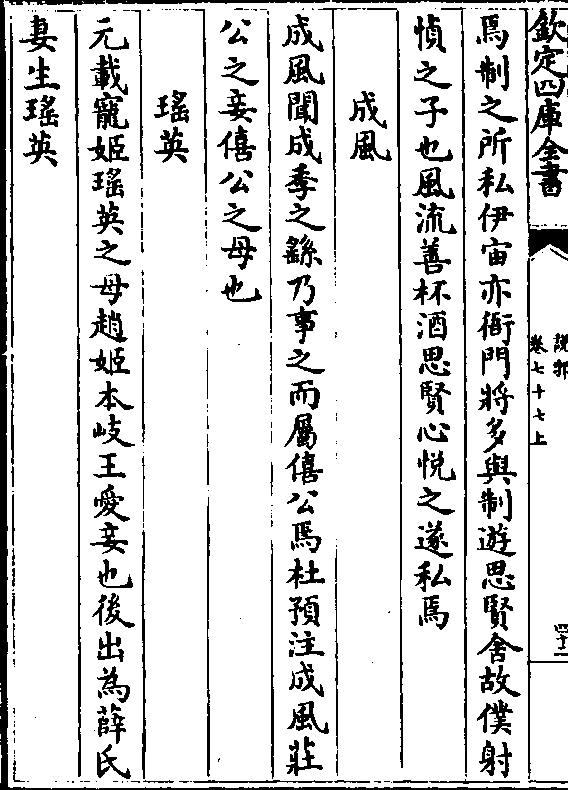 欽定四庫全書
說郛
卷七十七上
焉制之所私伊宙亦衙門將多與制遊思賢舍故僕射
愼之子也風流善杯酒思賢心悅之遂私焉
成風
成風聞成季之繇乃事之而屬僖公焉杜預注成風莊
公之妾僖公之母也
瑤英
元載寵姬瑤英之母趙姬本岐王愛妾也後出為薛氏
妻生瑤英